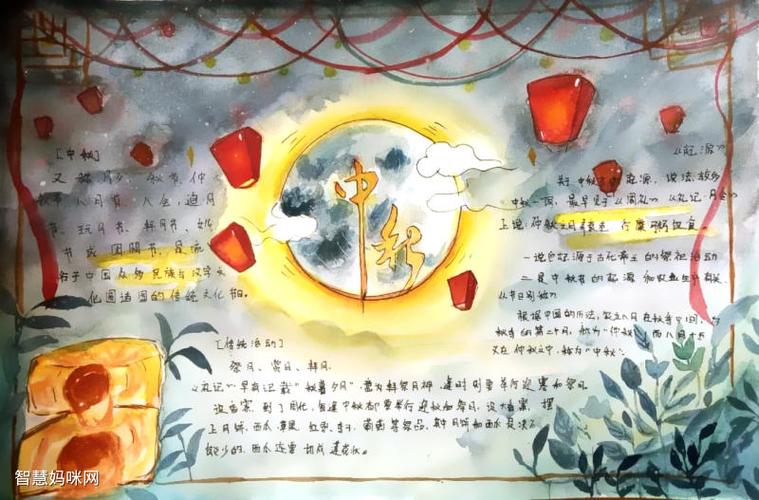 中秋
[中秋]
又称月夕、秋节、仲
秋节、八月节、八会、追月
节、玩月节、拜月节、女儿
节或团圆节,是流
行于中国众多民族与汉字文
化圈诸国的传统文化节。
《起源》
关于中秋节的起源,说法较多
中秋一词,最早见于《周礼》《礼记·月令》
上说:仲秋之月养衰老,行糜粥饮食。
一说它起源于古代帝王的祭祀活动
二是中秋节的起源和农业生产有关
《节日别称》
根据中国的历法,农历八月在秋季中间,为
秋季的第二个月,称为"仲秋",而八月十五
又在仲秋之中,称为"中秋"。
[传统活动]
祭月、赏月、拜月
《礼记》早有记载"秋暮夕月",意为拜祭月神,逢时则要举行迎寒和祭月
设香案。到了周代,每逢中秋都要举行迎秋和祭月。设大香案,摆
上月饼、西瓜、苹果、红枣、李子、葡萄等祭品,其中月饼和西瓜是决不
能少的。西瓜还要切成莲花状。
智慧妈咪网